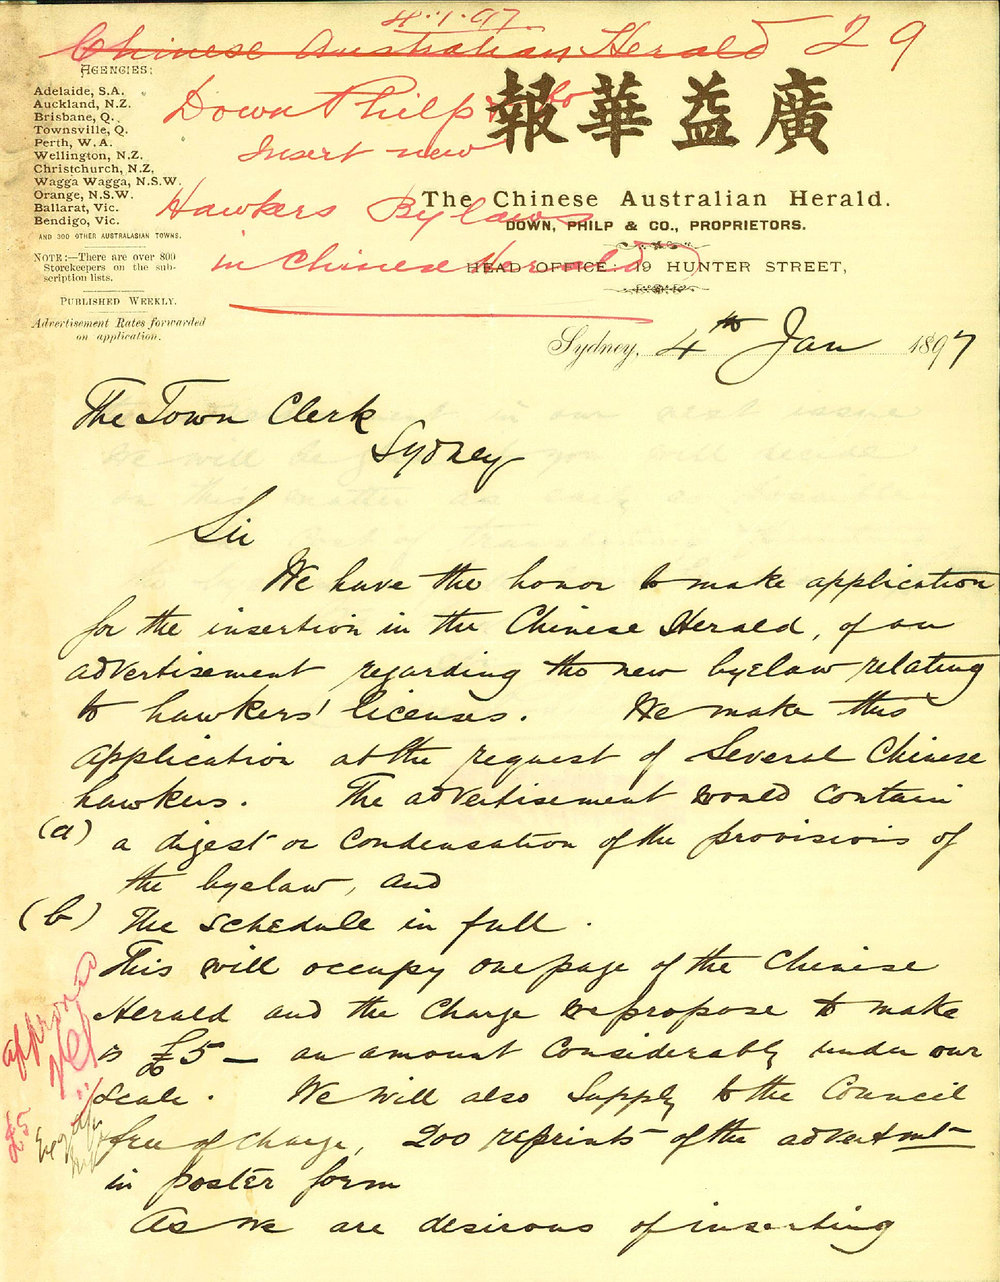 4.1.97
Chinese Australian Herald 29
Down Philp & Co
Insert new
Hawkers Bylaws
in Chinese Herald
AGENCIES:
Adelaide, S.A.
Auckland, N.Z.
Brisbane, Q.
Townsville, Q.
Perth, W.A.
Wellington, N.Z.
Christchurch, N.Z.
Wagga Wagga, N.S.W.
Orange, N.S.W.
Ballarat, Vic.
Bendigo, Vic.
AND 300 OTHER AUSTRALASIAN TOWNS.
NOTE:—There are over 800
Storekeepers on the sub-
scription lists.
PUBLISHED WEEKLY.
Advertisement Rates forwarded
on application.
報華益廣
The Chinese Australian Herald.
DOWN, PHILP & CO., PROPRIETORS.
HEAD OFFICE: 19 HUNTER STREET,
Sydney, 4th Jan 1897
The Town Clerk
Sydney
Sir
We have the honor to make application
for the insertion in the Chinese Herald, of an
advertisement regarding the new byelaw relating
to hawkers' licenses. We make this
application at the request of several Chinese
hawkers. The advertisement would contain
(a) a digest or condensation of the provisions of
the byelaw, and
(b) The schedule in full.
This will occupy one page of the Chinese
Herald and the charge we propose to make
is £5 — an amount considerably under our
scale. We will also supply to the Council
free of charge, 200 reprints of the advertmt
in poster form
As we are desirous of inserting
approved
£5